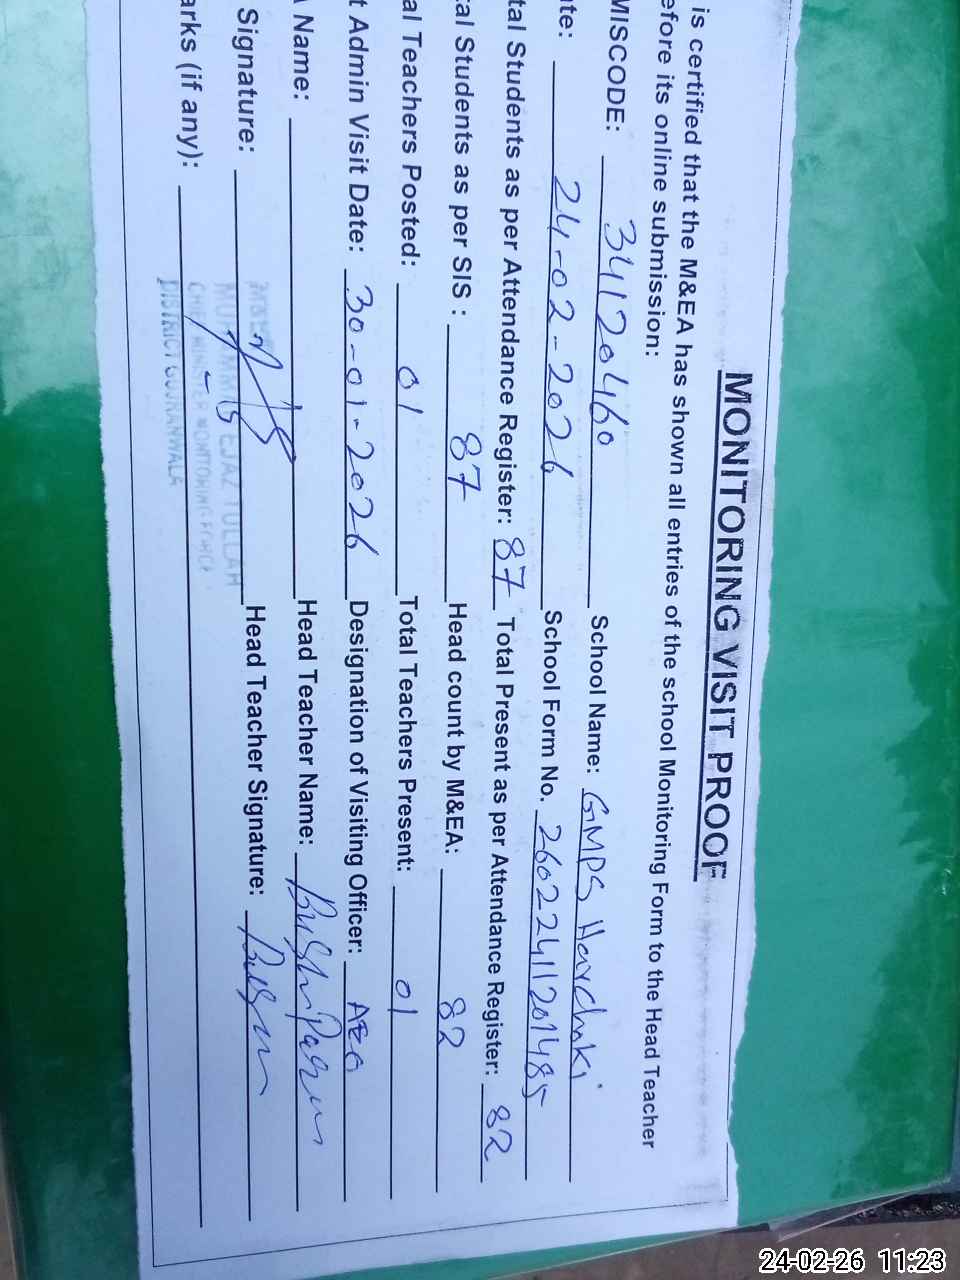 MONITORING VISIT PROOF
is certified that the M&EA has shown all entries of the school Monitoring Form to the Head Teacher
efore its online submission:
MISCODE: 34120460 School Name: GMPS Harchoki
ate: 24-02-2026 School Form No. 26022411201485
tal Students as per Attendance Register: 87 Total Present as per Attendance Register: 82
tal Students as per SIS : 87 Head count by M&EA: 82
al Teachers Posted: 01 Total Teachers Present: 01
t Admin Visit Date: 30-01-2026 Designation of Visiting Officer: AEO
Name: Head Teacher Name:
Signature: Head Teacher Signature:
arks (if any):
EJAZ TULLAH
CHIEF MINISTER MONITORING FORCE
DISTRICT GUJRANWALA
24-02-26 11:23